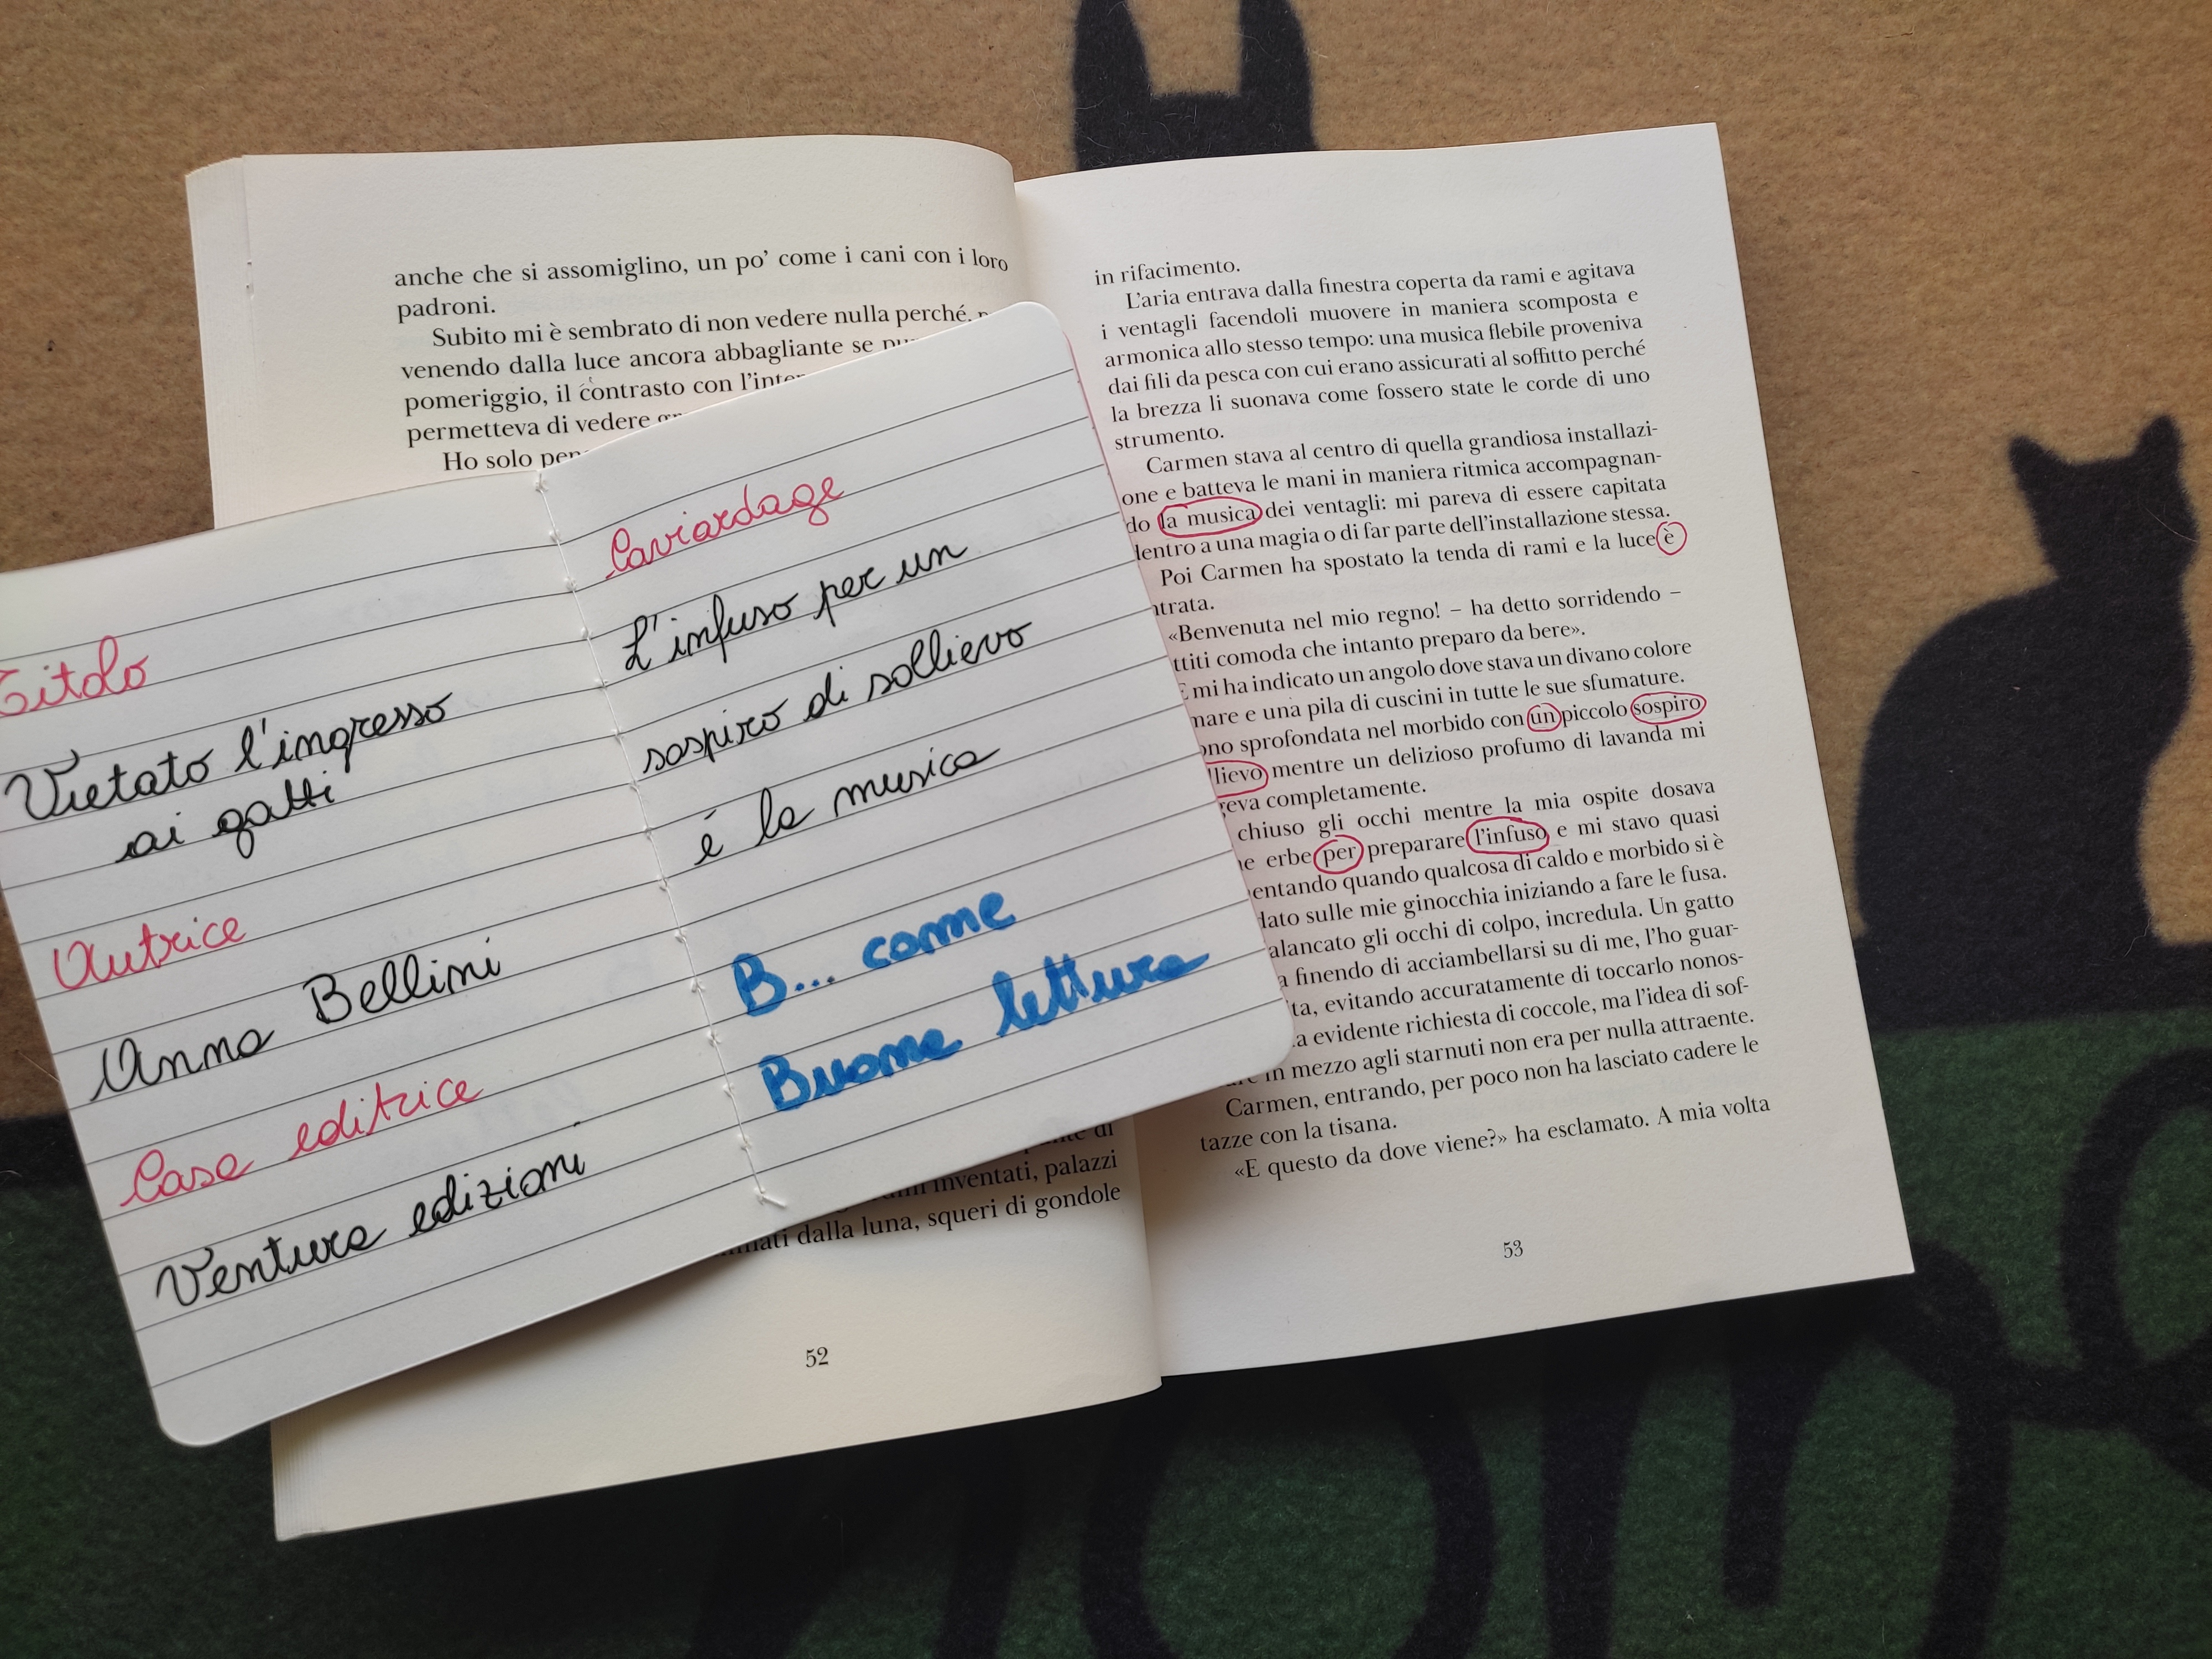 anche che si assomiglino, un po’ come i cani con i loro
padroni.
Subito mi è sembrato di non vedere nulla perché,
venendo dalla luce ancora abbagliante se
pomeriggio, il contrasto con
permetteva di vedere
Ho solo
inventati, palazzi
dalla luna, squeri di gondole
52
Titolo
Vietato l'ingresso
ai gatti
Autrice
Anna Bellini
Casa editrice
Ventura edizioni
Caviardage
L'infuso per un
sospiro di sollievo
é la musica
B... come
Buona lettura
in rifacimento.
L’aria entrava dalla finestra coperta da rami e agitava
i ventagli facendoli muovere in maniera scomposta e
armonica allo stesso tempo: una musica flebile proveniva
dai fili da pesca con cui erano assicurati al soffitto perché
la brezza li suonava come fossero state le corde di uno
strumento.
Carmen stava al centro di quella grandiosa installazi-
one e batteva le mani in maniera ritmica accompagnan-
do la musica dei ventagli: mi pareva di essere capitata
dentro a una magia o di far parte dell’installazione stessa.
Poi Carmen ha spostato la tenda di rami e la luce è
ntrata.
«Benvenuta nel mio regno! – ha detto sorridendo –
ttiti comoda che intanto preparo da bere».
E mi ha indicato un angolo dove stava un divano colore
mare e una pila di cuscini in tutte le sue sfumature.
ono sprofondata nel morbido con un piccolo sospiro
llievo mentre un delizioso profumo di lavanda mi
geva completamente.
chiuso gli occhi mentre la mia ospite dosava
ne erbe per preparare l’infuso e mi stavo quasi
entando quando qualcosa di caldo e morbido si è
dato sulle mie ginocchia iniziando a fare le fusa.
alancato gli occhi di colpo, incredula. Un gatto
a finendo di acciambellarsi su di me, l’ho guar-
ta, evitando accuratamente di toccarlo nonos-
a evidente richiesta di coccole, ma l’idea di sof-
in mezzo agli starnuti non era per nulla attraente.
Carmen, entrando, per poco non ha lasciato cadere le
tazze con la tisana.
«E questo da dove viene?» ha esclamato. A mia volta
53